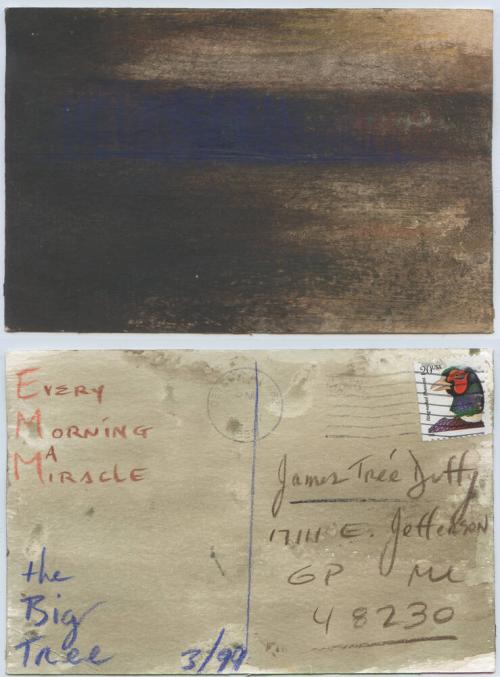 EVERY
MORNING
A
MIRACLE
the
Big
Tree
3/99
20USA
James Treé Duffy
17111 E. Jefferson
GP MI
48230